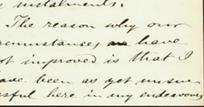 instalments.
The reason why our
circumstances have
not improved is that I
have been as yet unsuc-
cessful here in my endeavours